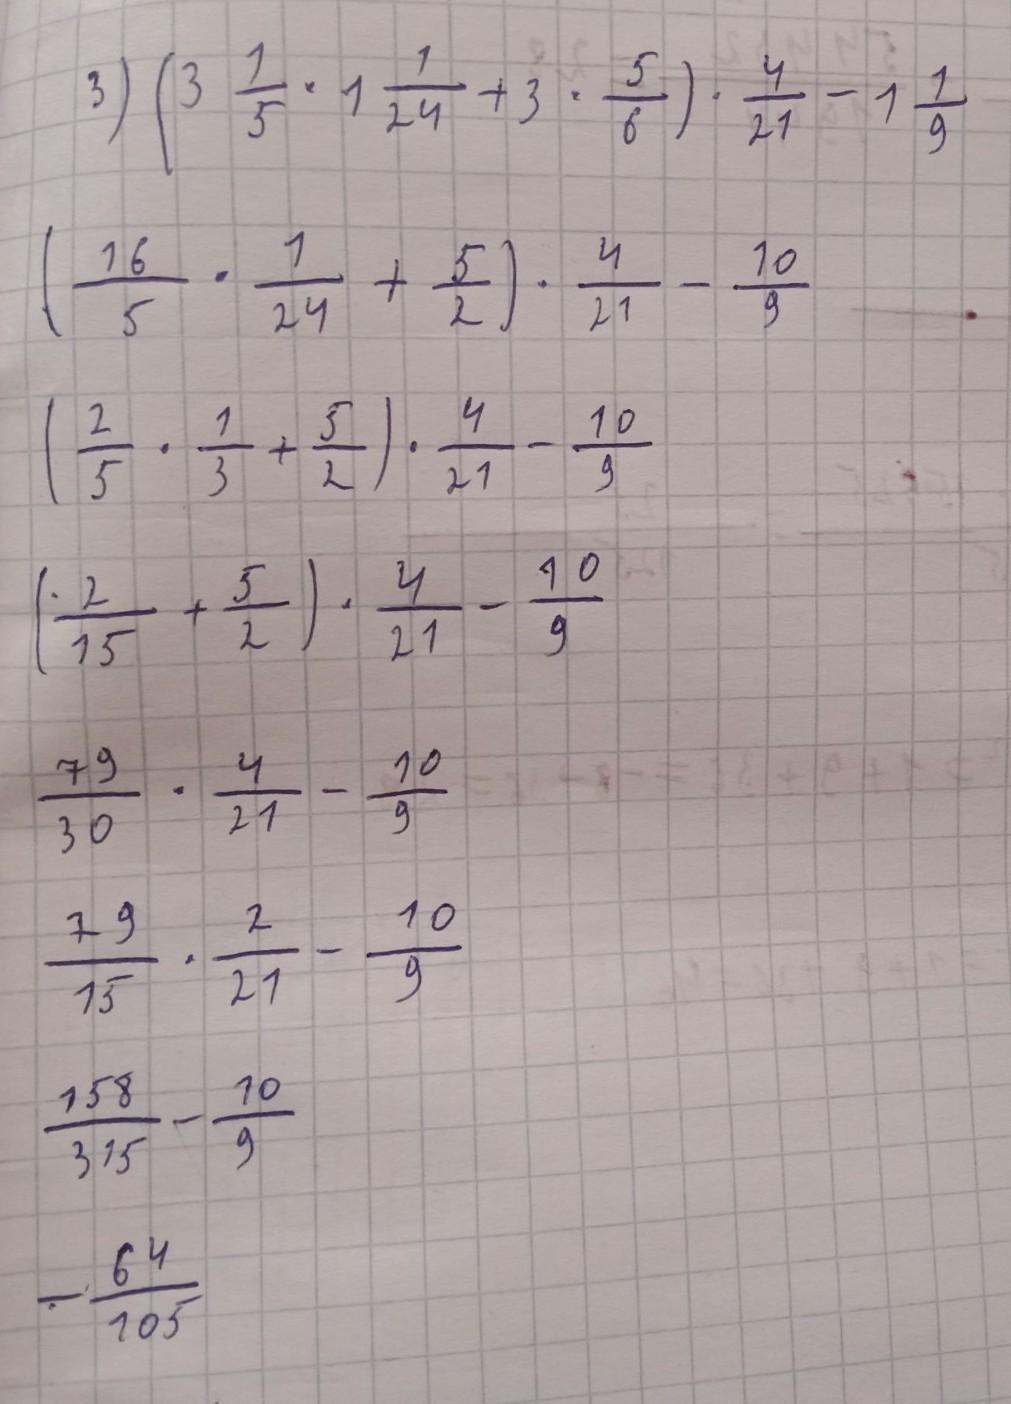 3) (3 1/5 · 1 1/24 + 3 · 5/6) · 4/21 - 1 1/9
(16/5 · 1/24 + 5/2) · 4/21 - 10/9
(2/5 · 1/3 + 5/2) · 4/21 - 10/9
(2/15 + 5/2) · 4/21 - 10/9
79/30 · 4/21 - 10/9
79/15 · 2/21 - 10/9
158/315 - 10/9
- 64/105